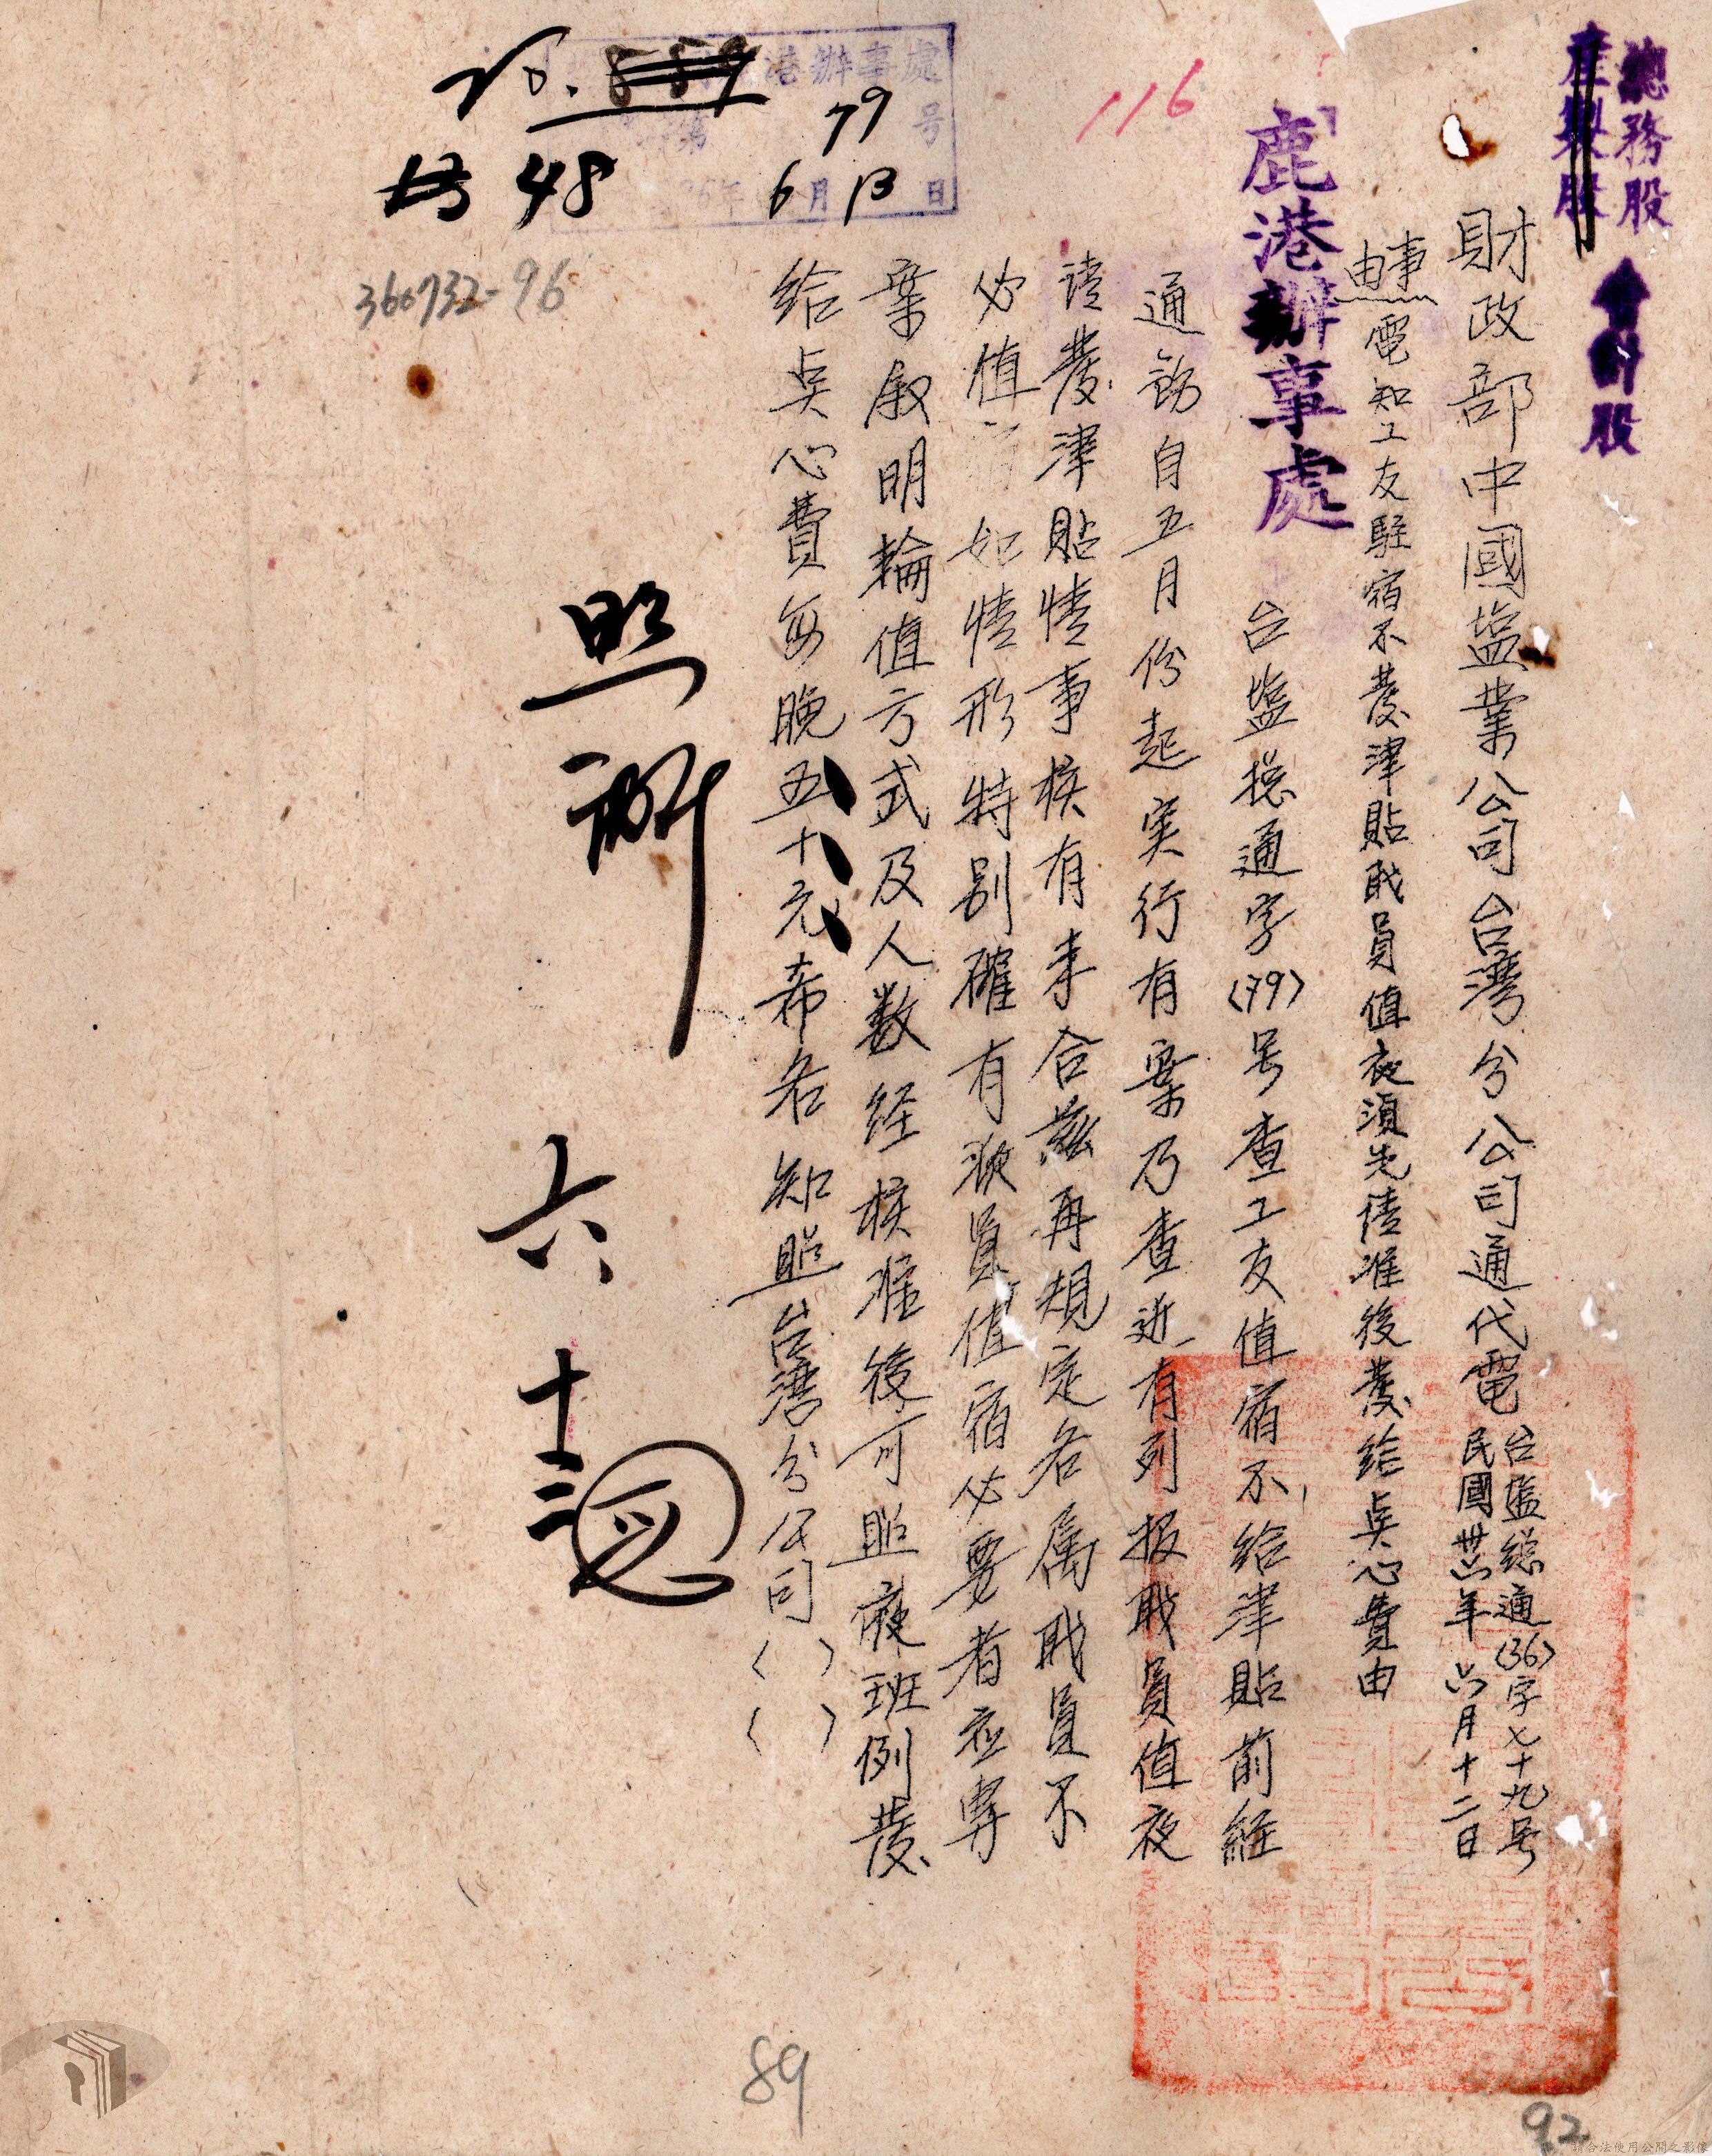 總務股
產製股
會計股
財政部中國盐業公司台灣分公司通代電
台盐總通(36)字七十九号
民國卅六年六月十二日
事由
電知工友駐宿不發津貼戝員值夜須先請准後發給点心費由
鹿港辦事處
台盐總通字(79)号查工友值宿不給津貼前經
通飭自五月份起実行有案乃查近有列报戝員值夜
請發津貼情事核有未合茲再規定各属戝員不
必值宿如情形特别確有派員值宿必要者应專
案叙明輪值方式及人数经核准後可照夜班例發
給点心費每晚五十元希各知照台灣分公司( )( )
116
港辦事處
第 79 号
36年 6月13日
48
360732-96
照辦
六
十三
89
92
請合法使用公開之影像